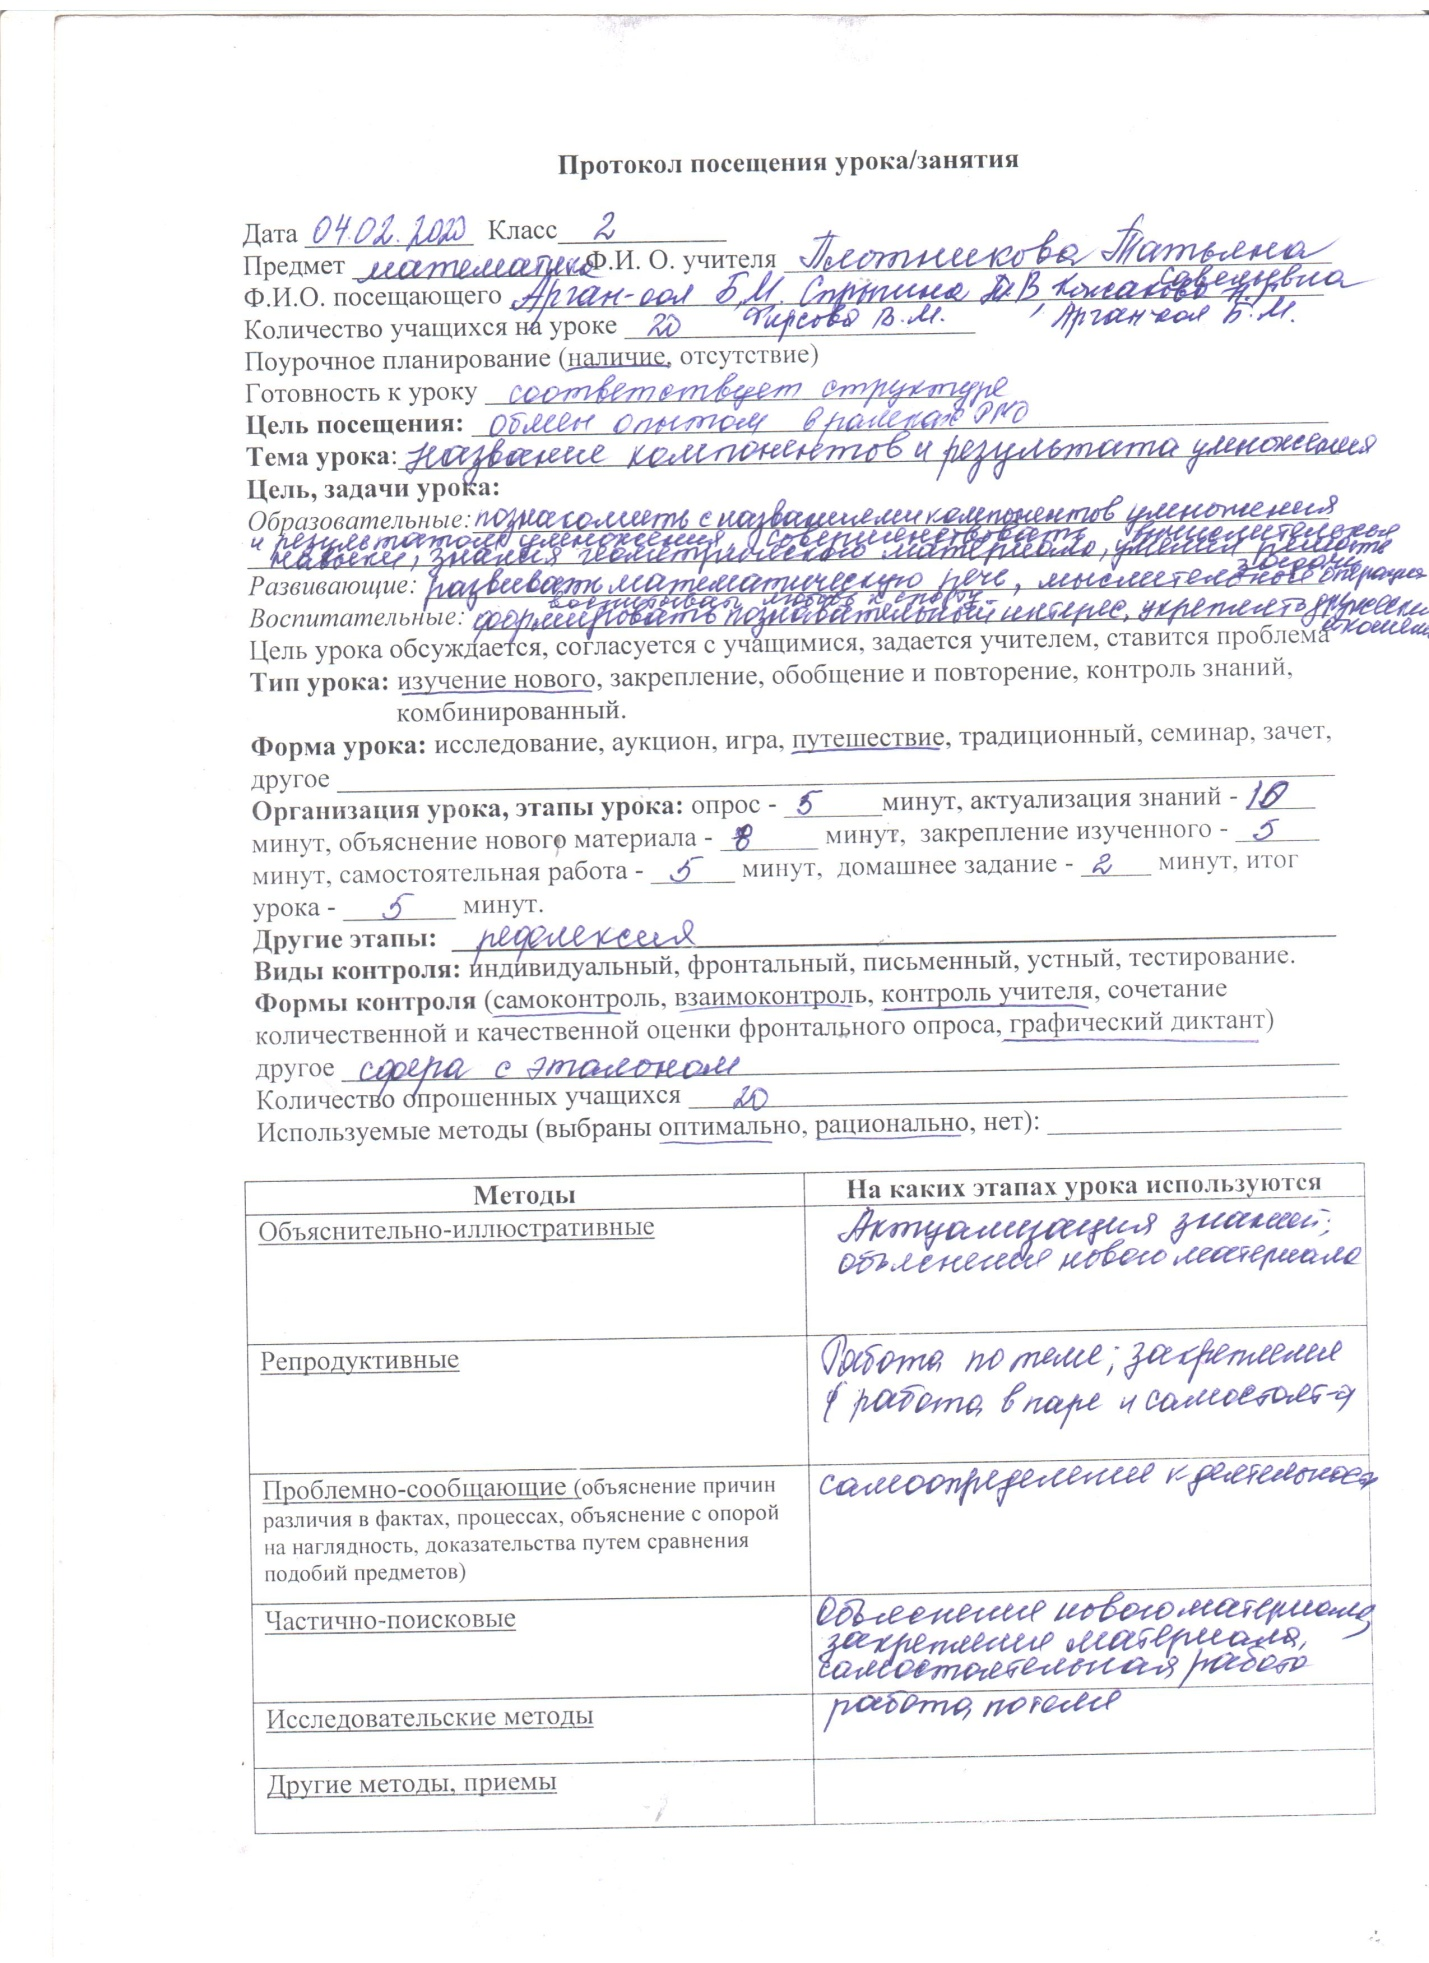 Протокол посещения урока/занятия
Дата 04.02.2020 Класс 2
Предмет математика Ф.И. О. учителя Плотникова Татьяна
Савельевна
Ф.И.О. посещающего Арган-оол Б.М. Спрыгина Т.В Кожакова
Количество учащихся на уроке 20 Фирсова В.М. Арган-оол Б.М.
Поурочное планирование (наличие, отсутствие)
Готовность к уроку соответствует структуре
Цель посещения: обмен опытом в рамках РМО
Тема урока: Название компонентов и результата умножения
Цель, задачи урока:
Образовательные: познакомить с названиями компонентов умножения
и результатом умножения, совершенствовать вычислительные
навыки, знания геометрического материала, умения решать
задачи
Развивающие: развивать математическую речь, мыслительные операции
воспитывать любовь к спорту
Воспитательные: формировать познавательный интерес, укреплять дружеские
Цель урока обсуждается, согласуется с учащимися, задается учителем, ставится проблема
Тип урока: изучение нового, закрепление, обобщение и повторение, контроль знаний,
комбинированный.
Форма урока: исследование, аукцион, игра, путешествие, традиционный, семинар, зачет,
другое
Организация урока, этапы урока: опрос - 5 минут, актуализация знаний - 10
минут, объяснение нового материала - 8 минут, закрепление изученного - 5
минут, самостоятельная работа - 5 минут, домашнее задание - 2 минут, итог
урока - 5 минут.
Другие этапы: рефлексия
Виды контроля: индивидуальный, фронтальный, письменный, устный, тестирование.
Формы контроля (самоконтроль, взаимоконтроль, контроль учителя, сочетание
количественной и качественной оценки фронтального опроса, графический диктант)
другое сфера с эталоном
Количество опрошенных учащихся 20
Используемые методы (выбраны оптимально, рационально, нет):
Методы На каких этапах урока используются
Объяснительно-иллюстративные Актуализация знаний;
объяснения нового материала
Репродуктивные Работа по теме; закрепление
работа в паре и самостоят-я
Проблемно-сообщающие (объяснение причин самоопределение к деятельност
различия в фактах, процессах, объяснение с опорой
на наглядность, доказательства путем сравнения
подобий предметов)
Частично-поисковые Объяснение нового материала,
закрепление материала,
самостоятельная работа
Исследовательские методы работа по теме
Другие методы, приемы